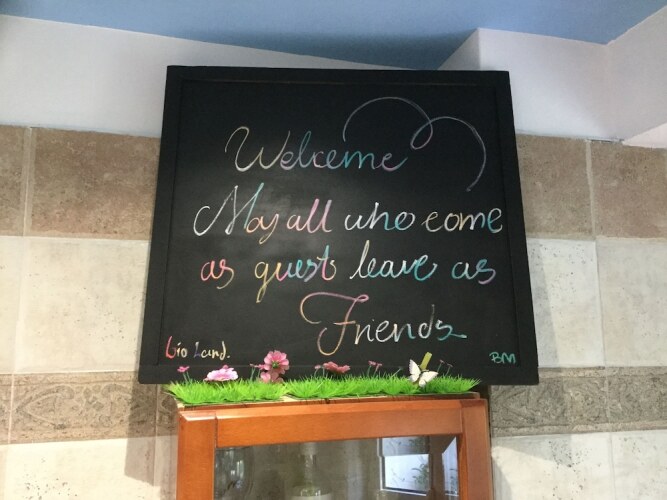 Welcome
May all who come
as guests leave as
Friends
Bio Land.
BM